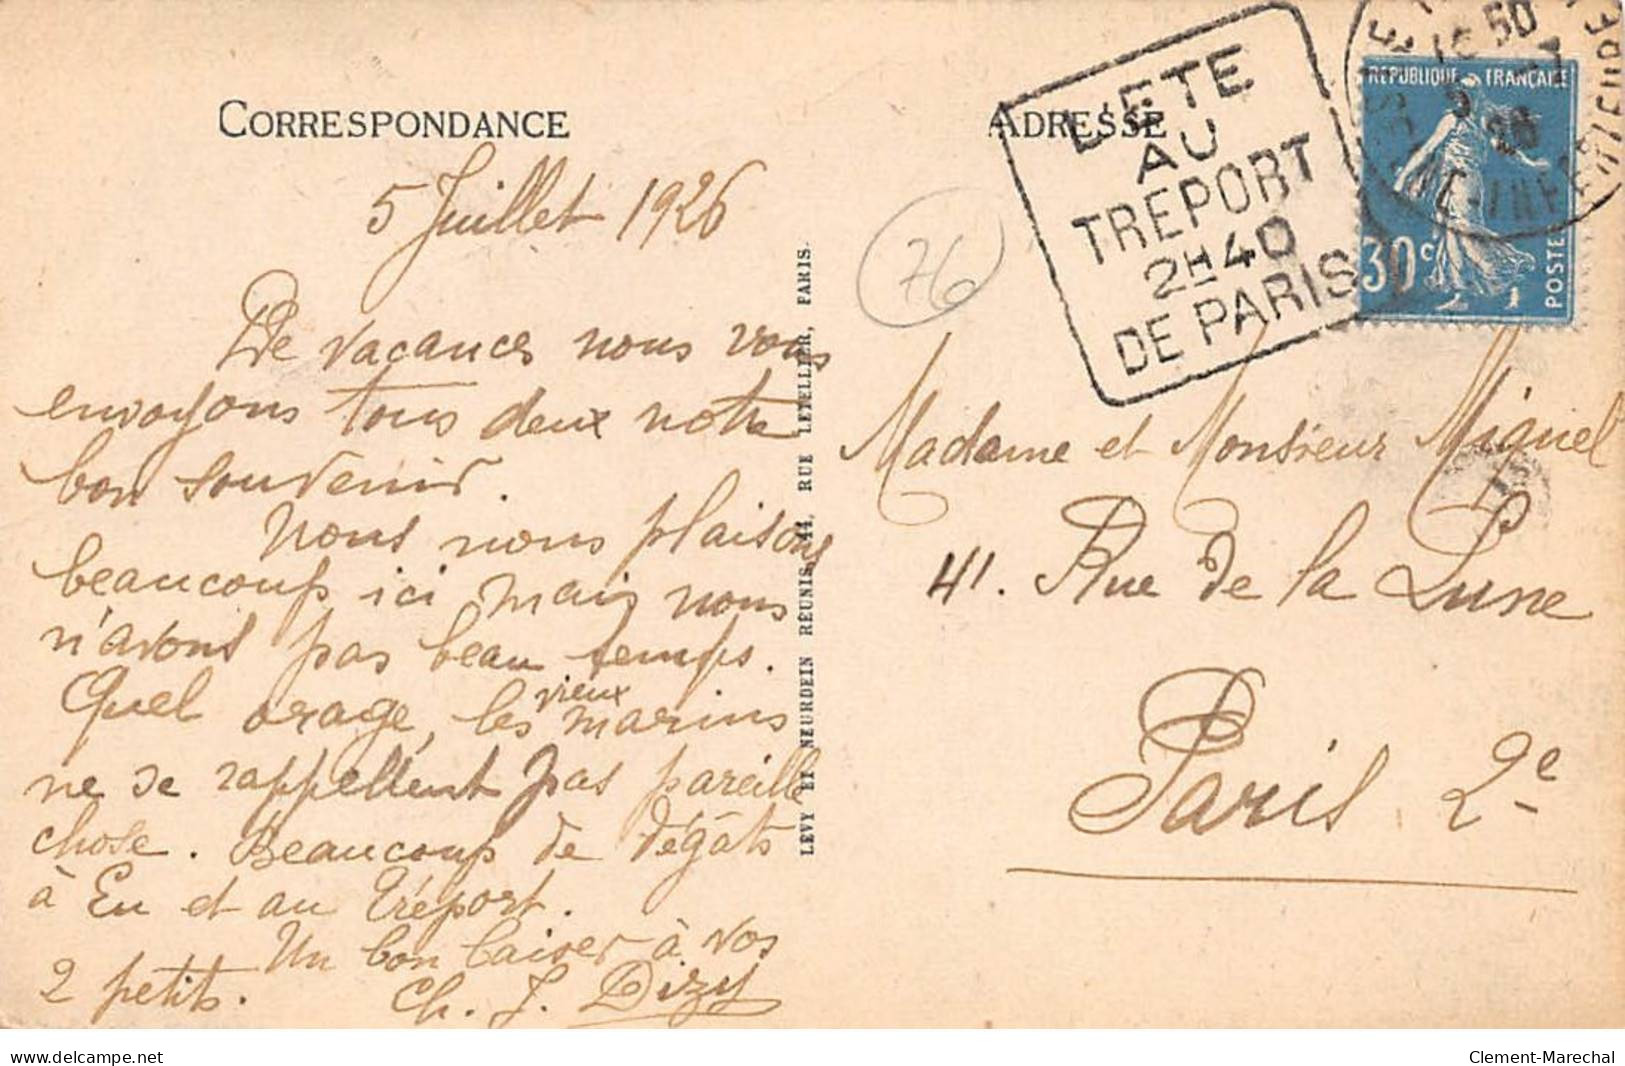 CORRESPONDANCE
5 Juillet 1926
De vacances nous vous
envoyons tous deux notre
bon souvenir.
Nous nous plaisons
beaucoup ici mais nous
n'avons pas beau temps.
Quel orage, les vieux marins
ne se rappellent pas pareille
chose. Beaucoup de dégâts
à Eu et au Tréport.
Un bon baiser à vos
2 petits. Ch. J. Dizy
LEVY ET NEURDEIN RÉUNIS, 44, RUE LETELLIER, PARIS.
76
ADRESSE
L'ETE
AU
TREPORT
2H40
DE PARIS
RÉPUBLIQUE FRANÇAISE
30c
POSTES
Madame et Monsieur Miquel
41. Rue de la Lune
Paris 2e
delcampe.net
Clement-Marechal